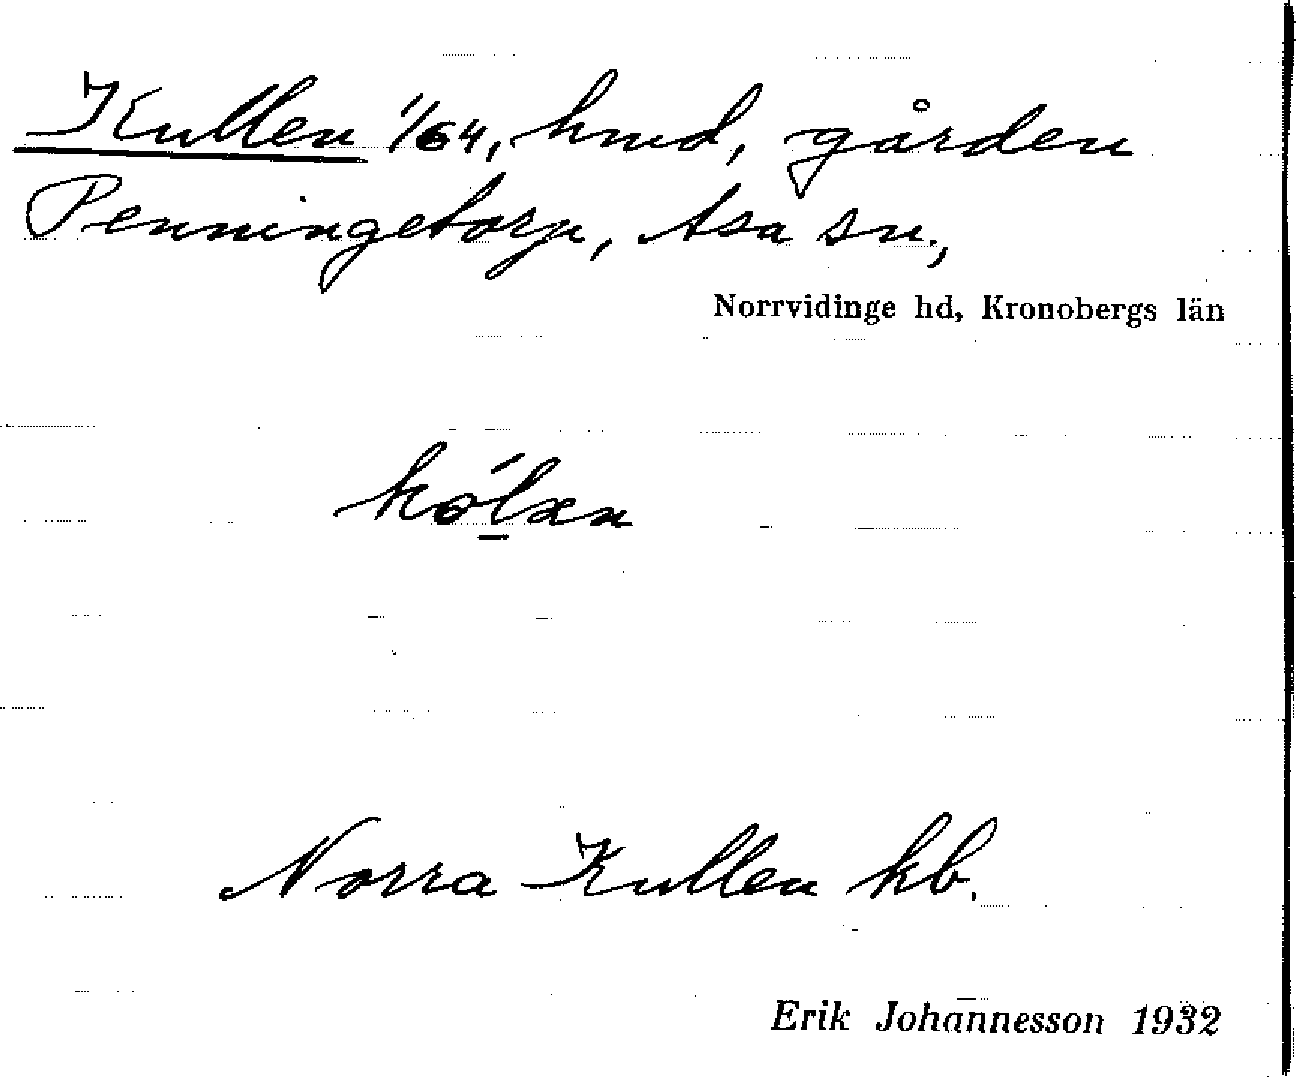 Kullen 1/64, hmd, gården
Penningetorp, Asa sn.,
Norrvidinge hd, Kronobergs län
Norra Kullen kb.
Erik Johannesson 1932